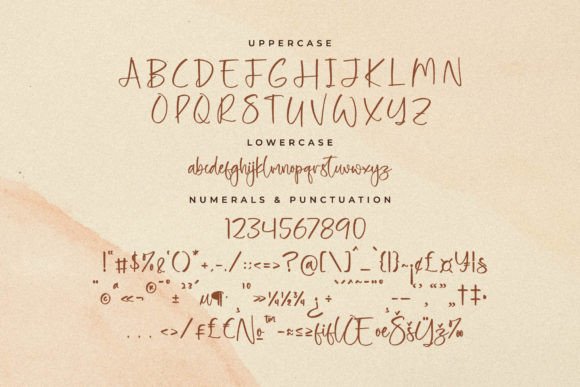 UPPERCASE
ABCDEFGHIJKLMN
OPQRSTUVWXYZ
LOWERCASE
abcdefghijklmnopqrstuvwxyz
NUMERALS & PUNCTUATION
1234567890
!"#$%&'()*+,-./:;<=>?@[\]^_`{|}~¡¢£¤¥¦§
¨©ª«¬®¯°±²³´µ¶·¸¹º»¼½¾¿÷
...<>/₣₤€№™−≈≤≥fiflŒœŠšŸž‰